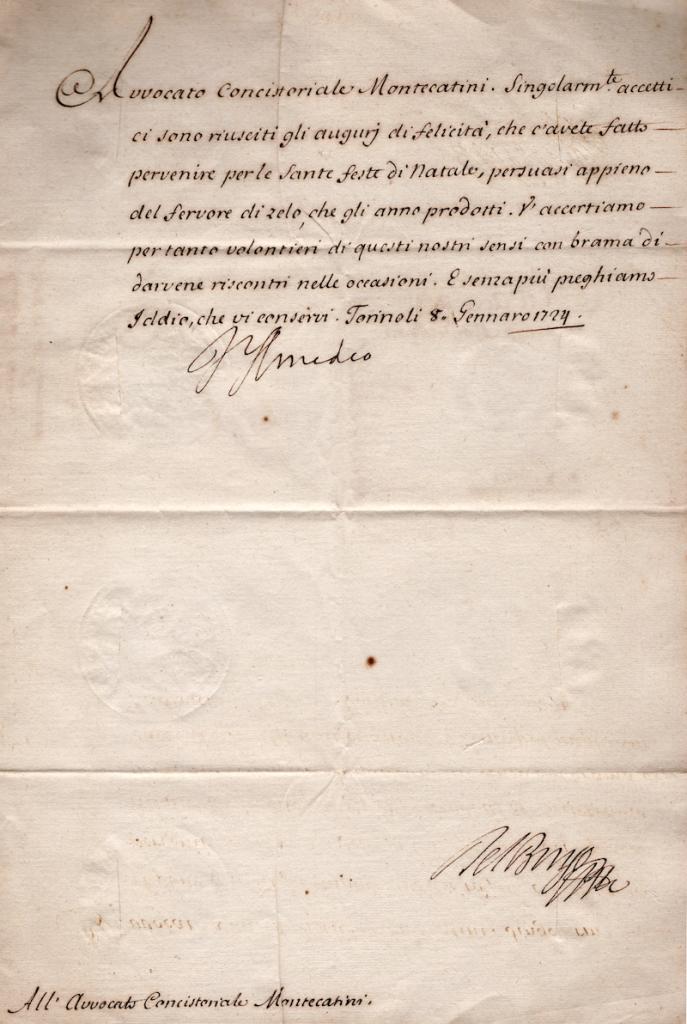 Avvocato Concistoriale Montecatini. Singolarm.te accetti-
ci sono riusciti gli augurj di felicità, che c'avete fatto
pervenire per le Sante feste di Natale, persuasi appieno
del fervore di zelo, che gli anno prodotti. V'accertiamo
per tanto volontieri di questi nostri sensi con brama di
darvene riscontri nelle occasioni. E senza più preghiamo
Iddio, che vi conservi. Torino li 8. Gennaro 1724.
V Amedeo
Del Borgo
All' Avvocato Concistoriale Montecatini.